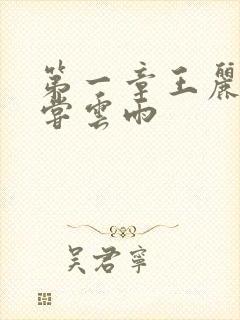 第一章王麗
嘗雲雨
吴君寧